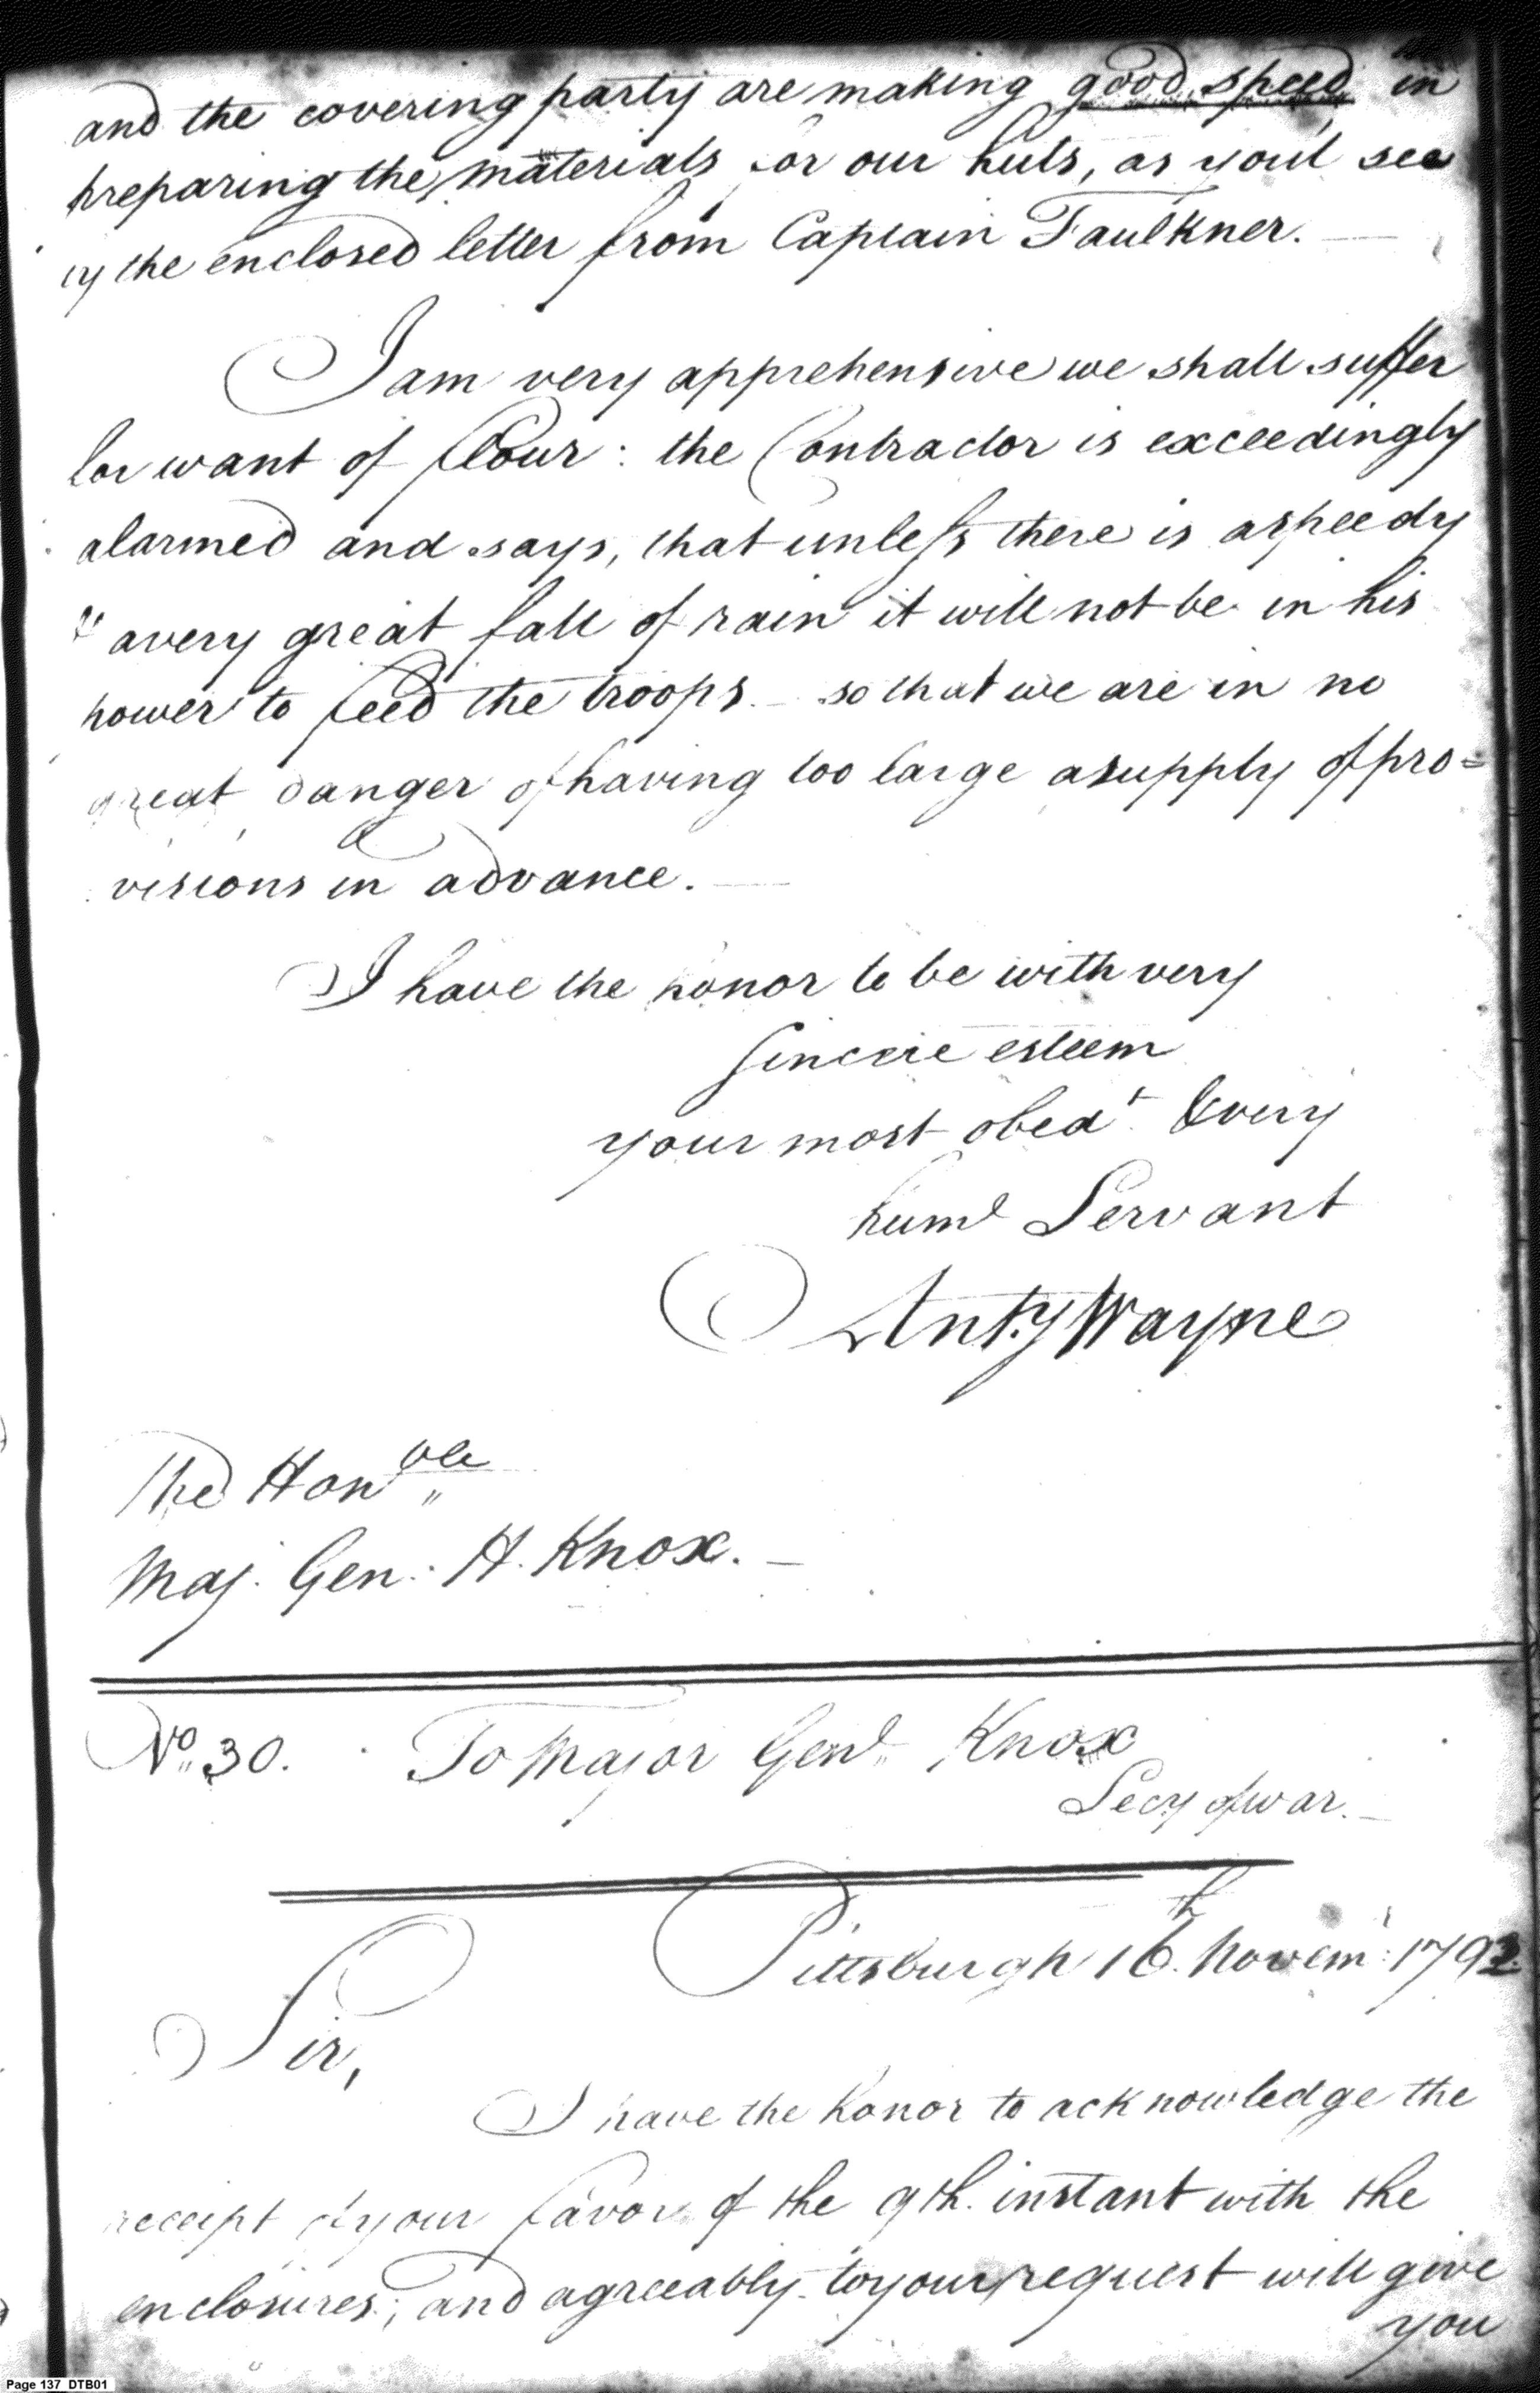 and the covering party are making good speed in
preparing the materials for our huts, as you'l see
by the enclosed letter from Captain Faulkner.
I am very apprehensive we shall suffer
for want of flour: the Contractor is exceedingly
alarmed and says, that unless there is a speedy
& a very great fall of rain it will not be in his
power to feed the troops — so that we are in no
great danger of having too large a supply of pro=
visions in advance.
I have the honor to be with very
sincere esteem
your most obedt. & very
huml Servant
Anty Wayne
The Honble
Maj. Gen: H. Knox.
No. 30. To Major Genl. Knox
Secy of war.
Pittsburgh 16th Novemr: 1792.
Sir,
I have the honor to acknowledge the
receipt of your favor of the 9th. instant with the
enclosures; and agreeably to your request will give
you
Page 137 DTB01